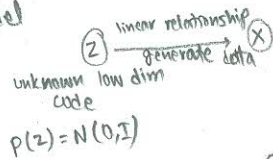 linear relationship
Z
X
generate data
unknown low dim
code
P(Z) = N(0,I)